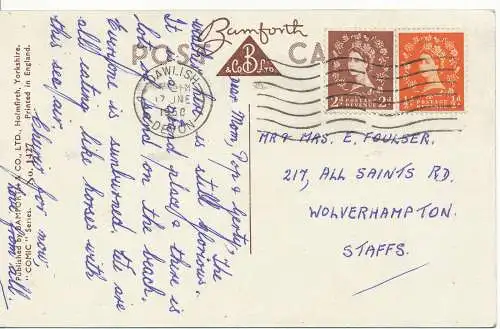 Bamforth
POST CARD
B
& Co LTD
DAWLISH
17 JNE
1960
DEVON
2D POSTAGE 2D
POSTAGE ½D
Dear Mom, Pop & Gerty, The
weather is still glorious.
It is a grand place & there is
lots of sand on the beach.
Everyone is sunburned. We are
all eating like horses with
this sea air.
Cheerio for now
Love from all
MR & MRS. E. FOULSER.
217, ALL SAINTS RD.
WOLVERHAMPTON.
STAFFS.
Published by BAMFORTH & CO., LTD., Holmfirth, Yorkshire.
"COMIC" Series. No. 1427 Printed in England.